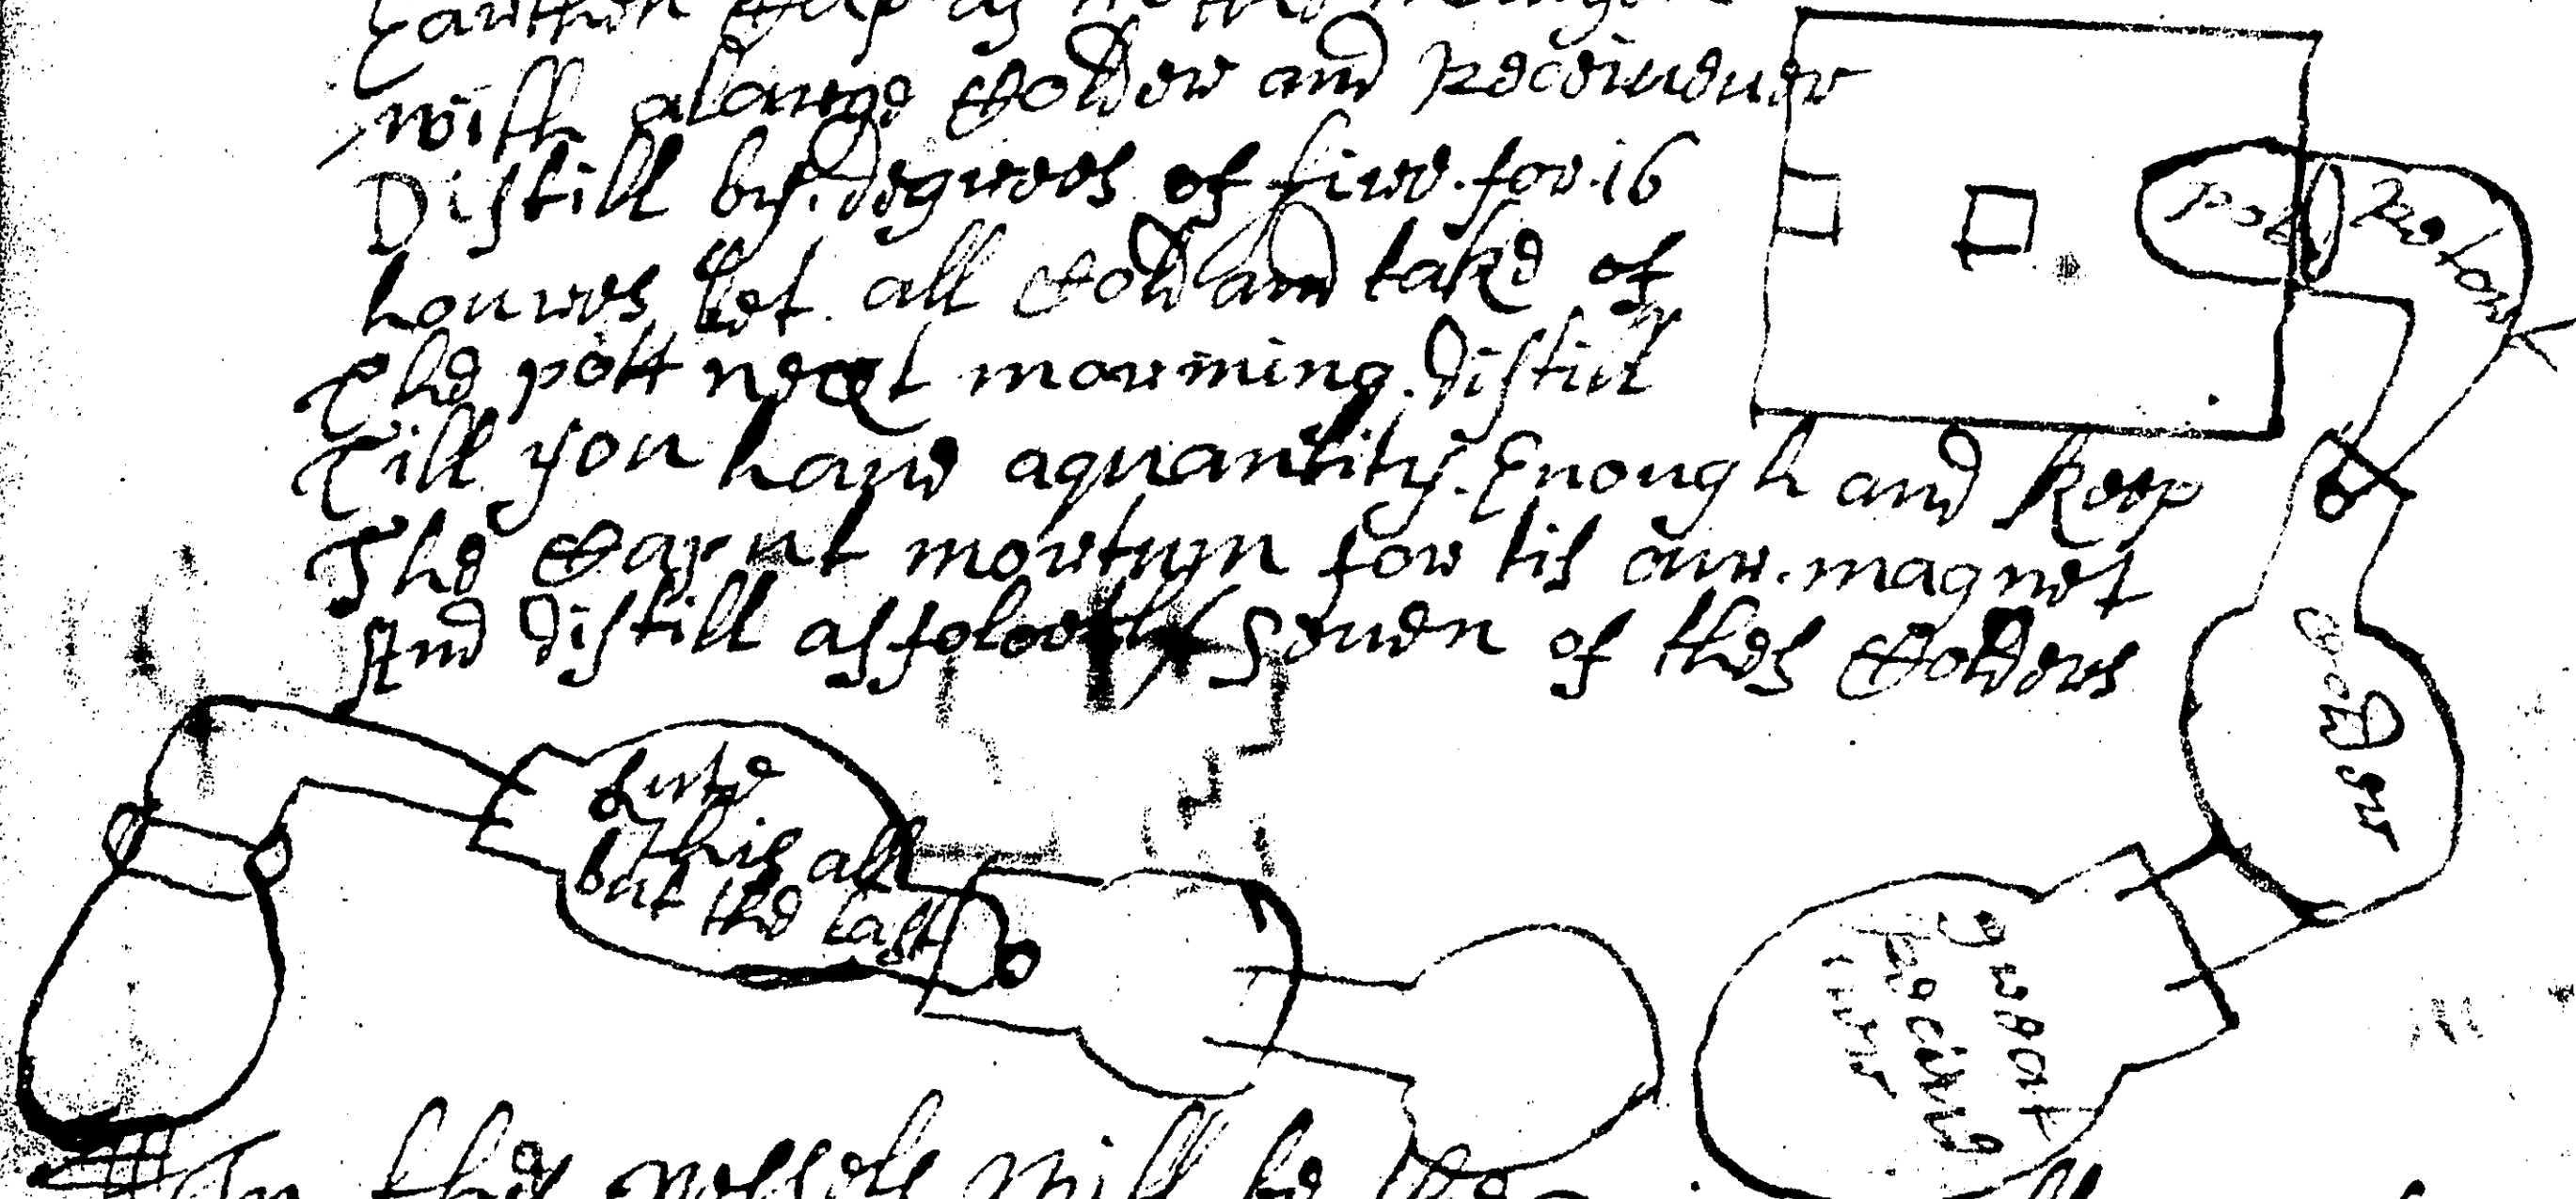 with a Large Colder and Receiueuer
Distill by. degrees of fire. for. 16
houres Let. all Cold and take of
The pott next morning. Distill
Till you haue a quantity. Enough and keep
The Caput mortum for tis our. magnet
And distill as foloweth Seuen of thes Colders
pot Retort
Colder
Great Receiuer
Lute
this all
but the Last
In thes vessels will be the